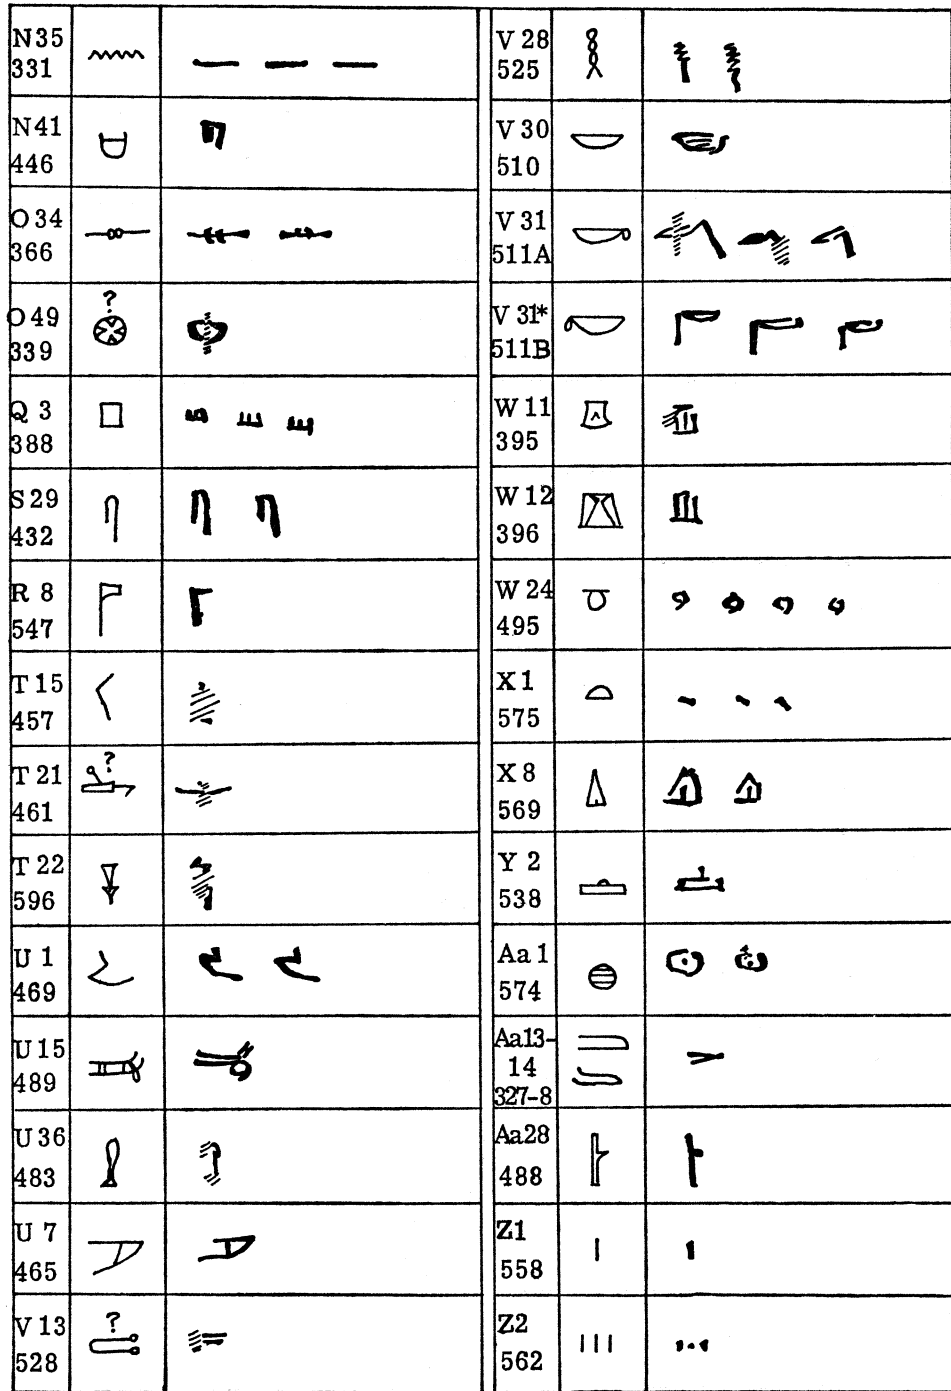 N35
331
N41
446
O34
366
?
O49
339
Q 3
388
S29
432
R 8
547
T 15
457
?
T 21
461
T 22
596
U 1
469
U 15
489
U36
483
U 7
465
?
V 13
528
V 28
525
V 30
510
V 31
511A
V 31*
511B
W 11
395
W 12
396
W 24
495
X 1
575
X 8
569
Y 2
538
Aa 1
574
Aa13-
14
327-8
Aa28
488
Z1
558
Z2
562